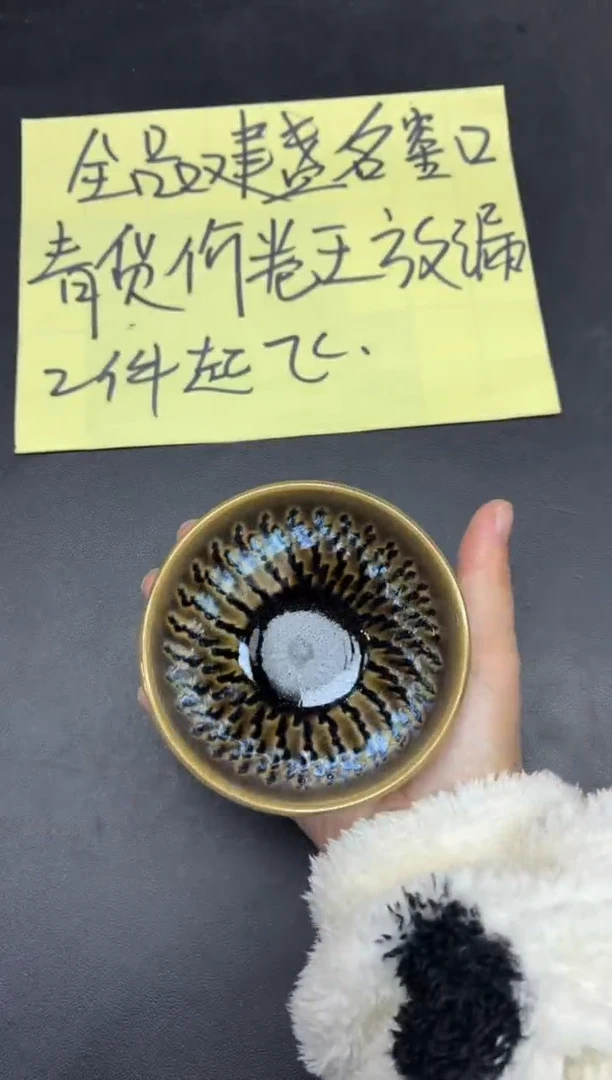 全品双建盏名鉴口
青货价卷王放漏
2件起飞.